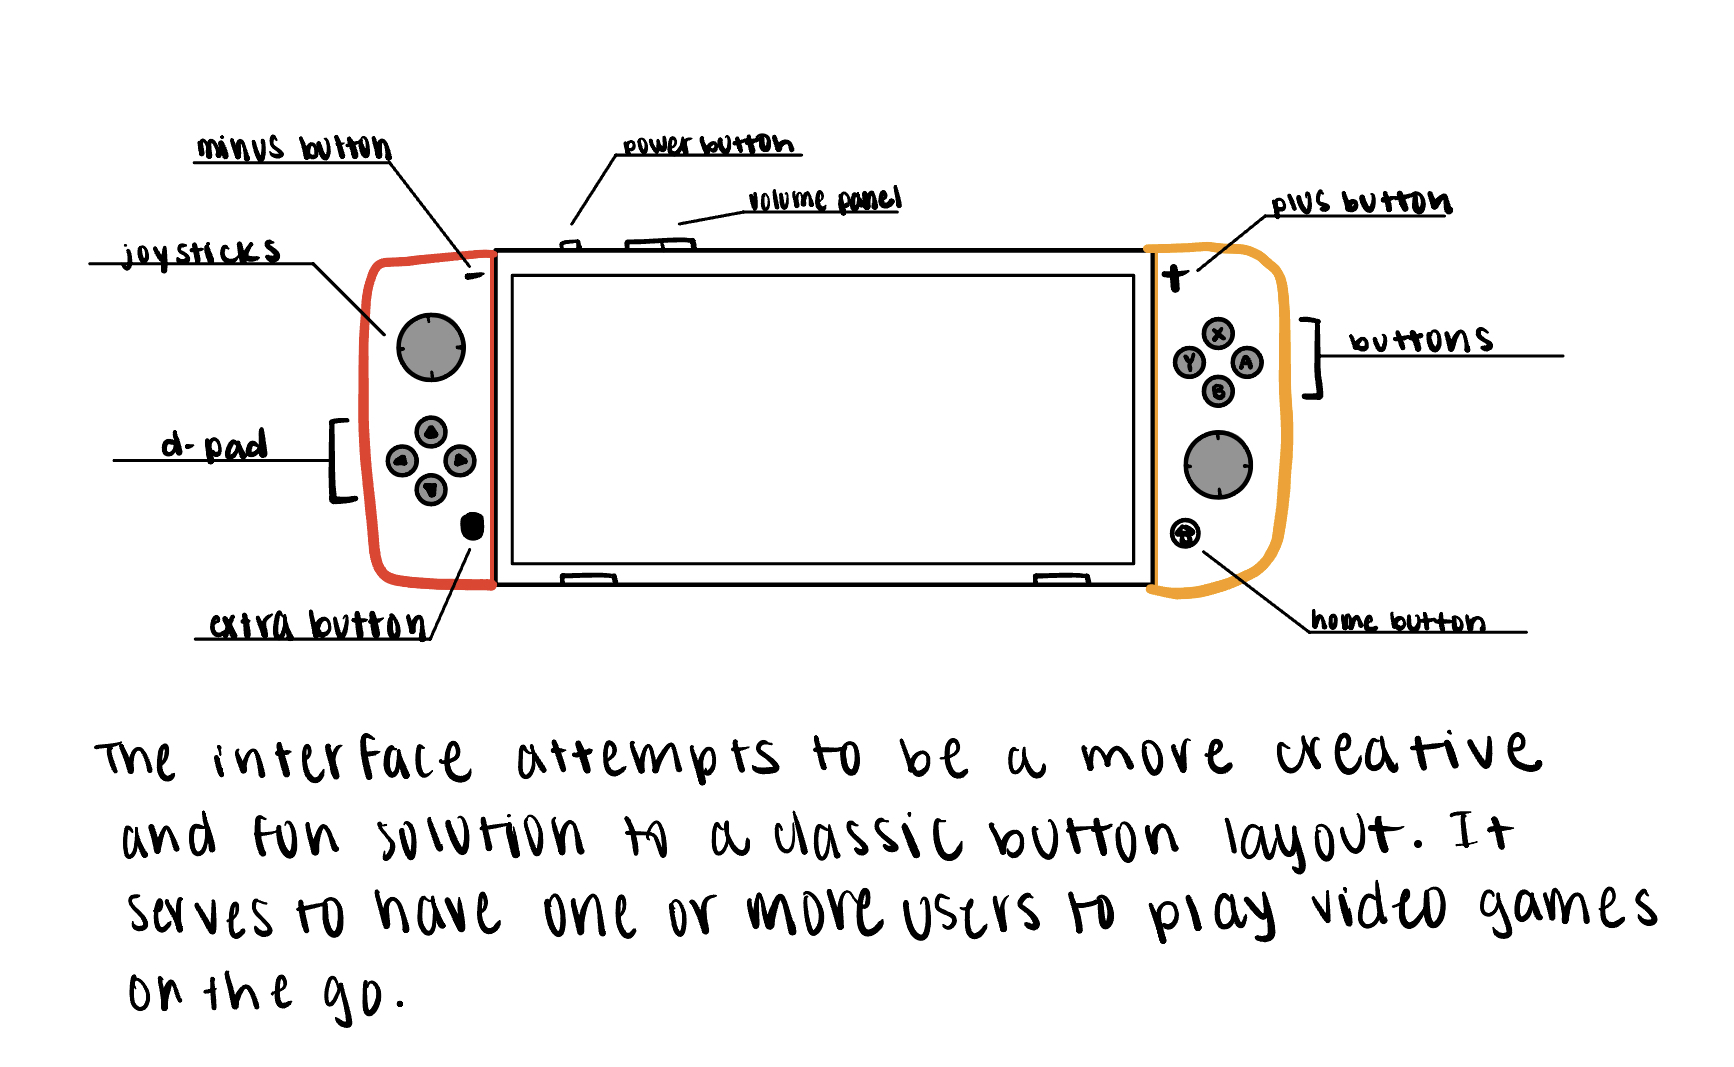 minus button
power button
volume panel
plus button
joysticks
X
Y A
B
buttons
d-pad
extra button
home button
The interface attempts to be a more creative
and fun solution to a classic button layout. It
serves to have one or more users to play video games
on the go.